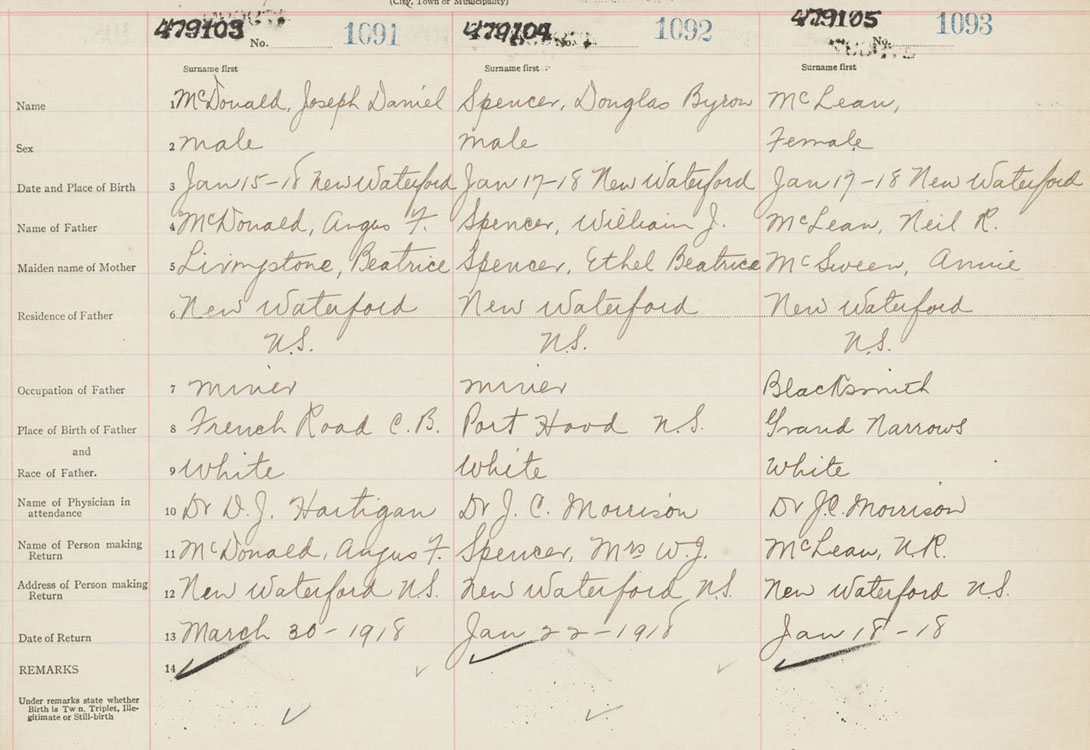 (City, Town or Municipality)
479103 No. 1091 479104 No. 1092 479105 No. 1093
Surname first Surname first Surname first
Name 1 McDonald, Joseph Daniel Spencer, Douglas Byron McLean,
Sex 2 male male Female
Date and Place of Birth 3 Jan 15-18 New Waterford Jan 17-18 New Waterford Jan 17-18 New Waterford
Name of Father 4 McDonald, Angus F. Spencer, William J. McLean, Neil R.
Maiden name of Mother 5 Livingstone, Beatrice Spencer, Ethel Beatrice McSween, Annie
Residence of Father 6 New Waterford New Waterford New Waterford
N.S. N.S. N.S.
Occupation of Father 7 miner miner Blacksmith
Place of Birth of Father 8 French Road C.B. Port Hood N.S. Grand Narrows
and
Race of Father. 9 White White White
Name of Physician in
attendance 10 Dr D.J. Hartigan Dr J.C. Morrison Dr J.C. Morrison
Name of Person making
Return 11 McDonald, Angus F. Spencer, Mrs W.J. McLean, N.R.
Address of Person making
Return 12 New Waterford N.S. New Waterford N.S. New Waterford N.S.
Date of Return 13 March 30-1918 Jan 22-1918 Jan 18-18
REMARKS 14
Under remarks state whether
Birth is Twn. Triplet, Ille-
gitimate or Still-birth